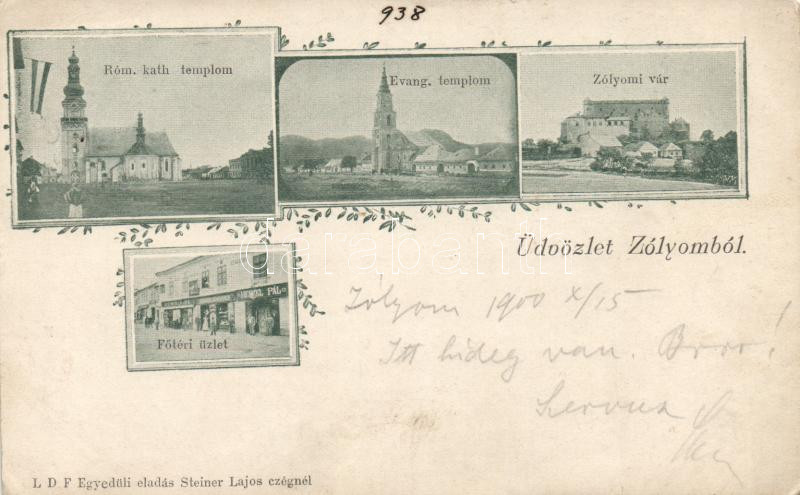 938
Róm. kath templom
Evang. templom
Zólyomi vár
darabanth
Üdvözlet Zólyomból.
PÁL
Főtéri üzlet
Zólyom 1900 X/15
Itt hideg van. Brrr!
Servus
L D F Egyedüli eladás Steiner Lajos czégnél